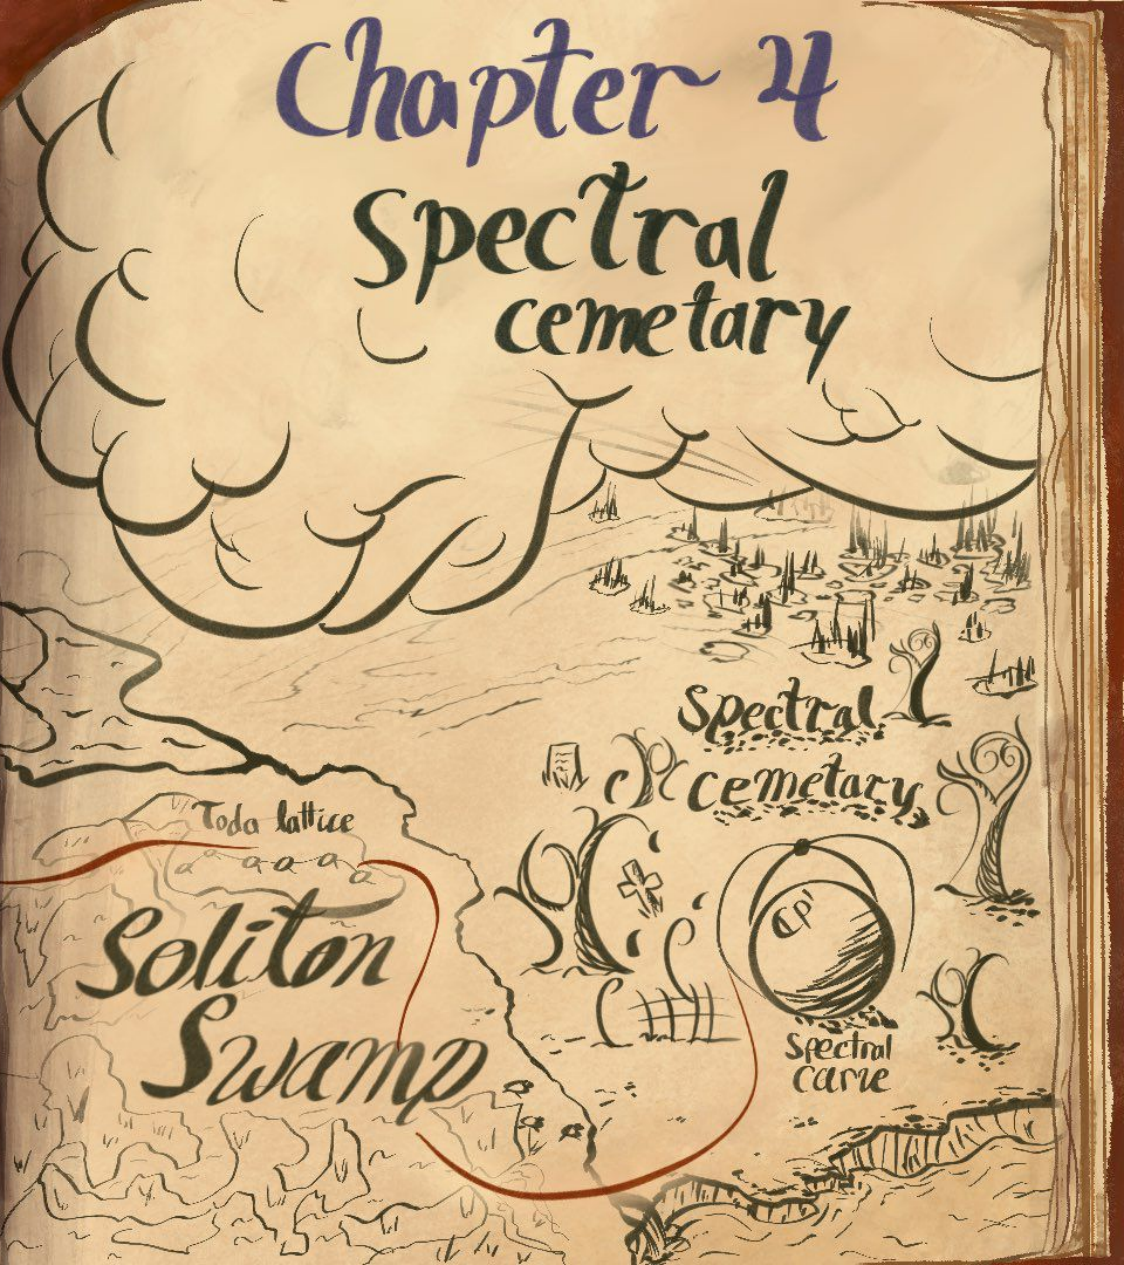 Chapter 4
Spectral
cemetary
Spectral
cemetary
Toda lattice
Soliton
Swamp
CP¹
Spectral
curve